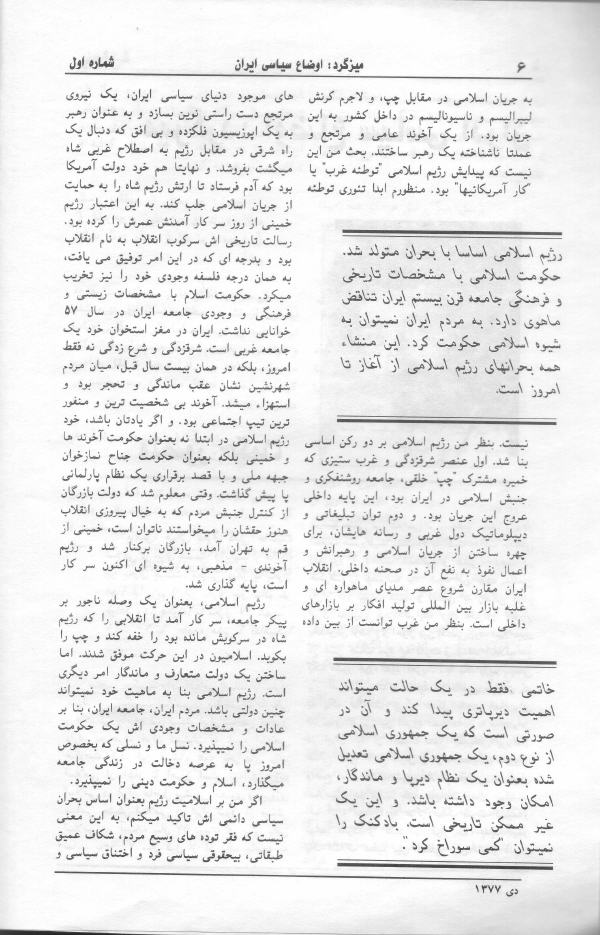 ۶
میزگرد: اوضاع سیاسی ایران
شماره اول
به جریان اسلامی در مقابل چپ، و لاجرم کرنش
لیبرالیسم و ناسیونالیسم در داخل کشور به این
جریان بود. از یک آخوند عامی و مرتجع و
عمدتا ناشناخته یک رهبر ساختند. بحث من این
نیست که پیدایش رژیم اسلامی "توطئه غرب" یا
"کار آمریکائیها" بود. منظورم ابدا تئوری توطئه
رژیم اسلامی اساسا با بحران متولد شد.
حکومت اسلامی با مشخصات تاریخی
و فرهنگی جامعه قرن بیستم ایران تناقض
ماهوی دارد. به مردم ایران نمیتوان به
شیوه اسلامی حکومت کرد. این منشاء
همه بحرانهای رژیم اسلامی از آغاز تا
امروز است.
نیست. بنظر من رژیم اسلامی بر دو رکن اساسی
بنا شد. اول عنصر شرقزدگی و غرب ستیزی که
خمیره مشترک "چپ" خلقی، جامعه روشنفکری و
جنبش اسلامی در ایران بود، این پایه داخلی
عروج این جریان بود. و دوم توان تبلیغاتی و
دیپلوماتیک دول غربی و رسانه هایشان، برای
چهره ساختن از جریان اسلامی و رهبرانش و
اعمال نفوذ به نفع آن در صحنه داخلی. انقلاب
ایران مقارن شروع عصر مدیای ماهواره ای و
غلبه بازار بین المللی تولید افکار بر بازارهای
داخلی است. بنظر من غرب توانست از بین داده
خاتمی فقط در یک حالت میتواند
اهمیت دیرپاتری پیدا کند و آن در
صورتی است که یک جمهوری اسلامی
از نوع دوم، یک جمهوری اسلامی تعدیل
شده بعنوان یک نظام دیرپا و ماندگار،
امکان وجود داشته باشد. و این یک
غیر ممکن تاریخی است. بادکنک را
نمیتوان "کمی سوراخ کرد".
های موجود دنیای سیاسی ایران، یک نیروی
مرتجع دست راستی نوین بسازد و به عنوان رهبر
به یک اپوزیسیون فلکزده و بی افق که دنبال یک
راه شرقی در مقابل رژیم به اصطلاح غربی شاه
میگشت بفروشد. و نهایتا هم خود دولت آمریکا
بود که آدم فرستاد تا ارتش رژیم شاه را به حمایت
از جریان اسلامی جلب کند. به این اعتبار رژیم
خمینی از روز سر کار آمدنش عمرش را کرده بود.
رسالت تاریخی اش سرکوب انقلاب به نام انقلاب
بود و بدرجه ای که در این امر توفیق می یافت،
به همان درجه فلسفه وجودی خود را نیز تخریب
میکرد. حکومت اسلام با مشخصات زیستی و
فرهنگی و وجودی جامعه ایران در سال ۵۷
خوانایی نداشت. ایران در مغز استخوان خود یک
جامعه غربی است. شرقزدگی و شرع زدگی نه فقط
امروز، بلکه در همان بیست سال قبل، میان مردم
شهرنشین نشان عقب ماندگی و تحجر بود و
استهزاء میشد. آخوند بی شخصیت ترین و منفور
ترین تیپ اجتماعی بود. و اگر یادتان باشد، خود
رژیم اسلامی در ابتدا نه بعنوان حکومت آخوند ها
و خمینی بلکه بعنوان حکومت جناح نمازخوان
جبهه ملی و با قصد برقراری یک نظام پارلمانی
پا پیش گذاشت. وقتی معلوم شد که دولت بازرگان
از کنترل جنبش مردم که به خیال پیروزی انقلاب
هنوز حقشان را میخواستند ناتوان است، خمینی از
قم به تهران آمد، بازرگان برکنار شد و رژیم
آخوندی - مذهبی، به شیوه ای اکنون سر کار
است، پایه گذاری شد.
رژیم اسلامی، بعنوان یک وصله ناجور بر
پیکر جامعه، سر کار آمد تا انقلابی را که رژیم
شاه در سرکوبش مانده بود را خفه کند و چپ را
بکوبد. اسلامیون در این حرکت موفق شدند. اما
ساختن یک دولت متعارف و ماندگار امر دیگری
است. رژیم اسلامی بنا به ماهیت خود نمیتواند
چنین دولتی باشد. مردم ایران، جامعه ایران، بنا بر
عادات و مشخصات وجودی اش یک حکومت
اسلامی را نمیپذیرد. نسل ما و نسلی که بخصوص
امروز پا به عرصه دخالت در زندگی جامعه
میگذارد، اسلام و حکومت دینی را نمیپذیرد.
اگر من بر اسلامیت رژیم بعنوان اساس بحران
سیاسی دائمی اش تاکید میکنم، به این معنی
نیست که فقر توده های وسیع مردم، شکاف عمیق
طبقاتی، بیحقوقی سیاسی فرد و اختناق سیاسی و
دی ۱۳۷۷